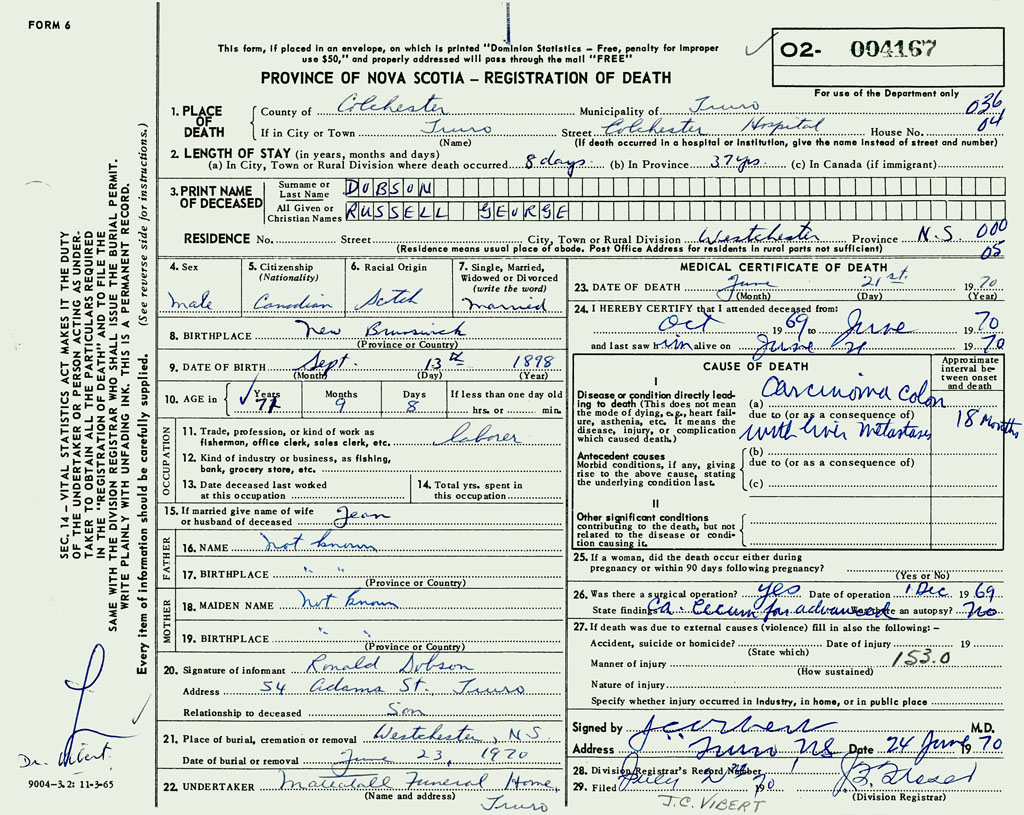 FORM 6
This form, if placed in an envelope, on which is printed "Dominion Statistics – Free, penalty for improper
use $50," and properly addressed will pass through the mail "FREE"
02- 004167
For use of the Department only
PROVINCE OF NOVA SCOTIA – REGISTRATION OF DEATH
036
04
1. PLACE OF DEATH
County of Colchester Municipality of Truro
If in City or Town Truro Street Colchester Hospital House No.
(Name) (If death occurred in a hospital or institution, give the name instead of street and number)
2. LENGTH OF STAY (in years, months and days)
(a) In City, Town or Rural Division where death occurred 8 days (b) In Province 37 yrs (c) In Canada (if immigrant)
3. PRINT NAME OF DECEASED
Surname or Last Name DOBSON
All Given or Christian Names RUSSELL GEORGE
RESIDENCE No. Street City, Town or Rural Division Westchester Province N.S. 000
(Residence means usual place of abode. Post Office Address for residents in rural parts not sufficient) 05
4. Sex
male
5. Citizenship
(Nationality)
Canadian
6. Racial Origin
Scotch
7. Single, Married,
Widowed or Divorced
(write the word)
Married
8. BIRTHPLACE New Brunswick
(Province or Country)
9. DATE OF BIRTH Sept. 13th 1898
(Month) (Day) (Year)
10. AGE in Years Months Days If less than one day old
71 9 8 hrs. or min.
OCCUPATION
11. Trade, profession, or kind of work as
fisherman, office clerk, sales clerk, etc. laborer
12. Kind of industry or business, as fishing,
bank, grocery store, etc.
13. Date deceased last worked
at this occupation
14. Total yrs. spent in
this occupation
15. If married give name of wife
or husband of deceased Jean
FATHER
16. NAME not known
17. BIRTHPLACE " "
(Province or Country)
MOTHER
18. MAIDEN NAME not known
19. BIRTHPLACE " "
(Province or Country)
20. Signature of informant Ronald Dobson
Address 54 Adams St. Truro
Relationship to deceased Son
21. Place of burial, cremation or removal Westchester, N.S.
Date of burial or removal June 23, 1970
22. UNDERTAKER Funeral Home,
(Name and address) Truro
MEDICAL CERTIFICATE OF DEATH
23. DATE OF DEATH June 21st. 1970
(Month) (Day) (Year)
24. I HEREBY CERTIFY that I attended deceased from:
Oct 1969 to June 1970
and last saw him alive on June 21 1970
CAUSE OF DEATH
Approximate
interval be-
tween onset
and death
I
Disease or condition directly lead-
ing to death (This does not mean
the mode of dying, e.g., heart fail-
ure, asthenia, etc. It means the
disease, injury, or complication
which caused death.)
(a) Carcinoma colon
due to (or as a consequence of)
with liver metastases 18 Months
Antecedent causes
Morbid conditions, if any, giving
rise to the above cause, stating
the underlying condition last.
(b)
due to (or as a consequence of)
(c)
II
Other significant conditions
contributing to the death, but not
related to the disease or condi-
tion causing it.
25. If a woman, did the death occur either during
pregnancy or within 90 days following pregnancy?
(Yes or No)
26. Was there a surgical operation? yes Date of operation 1 Dec 1969
State findings Ca. Cecum far advanced Was there an autopsy? No
27. If death was due to external causes (violence) fill in also the following: –
Accident, suicide or homicide? Date of injury 19
(State which)
Manner of injury 153.0
(How sustained)
Nature of injury
Specify whether injury occurred in Industry, in home, or in public place
Signed by M.D.
Address Truro, NS Date 24 June 1970
28. Division Registrar's Record Number
29. Filed July 2nd 70
(Division Registrar)
J.C. VIBERT
SEC. 14 – VITAL STATISTICS ACT MAKES IT THE DUTY
OF THE UNDERTAKER OR PERSON ACTING AS UNDER-
TAKER TO OBTAIN ALL THE PARTICULARS REQUIRED
IN THE "REGISTRATION OF DEATH" AND TO FILE THE
SAME WITH THE DIVISION REGISTRAR WHO SHALL ISSUE THE BURIAL PERMIT.
WRITE PLAINLY WITH UNFADING INK. THIS IS A PERMANENT RECORD.
Every item of information should be carefully supplied. (See reverse side for instructions.)
Dr. Vibert
9004-3.2: 11-3-65